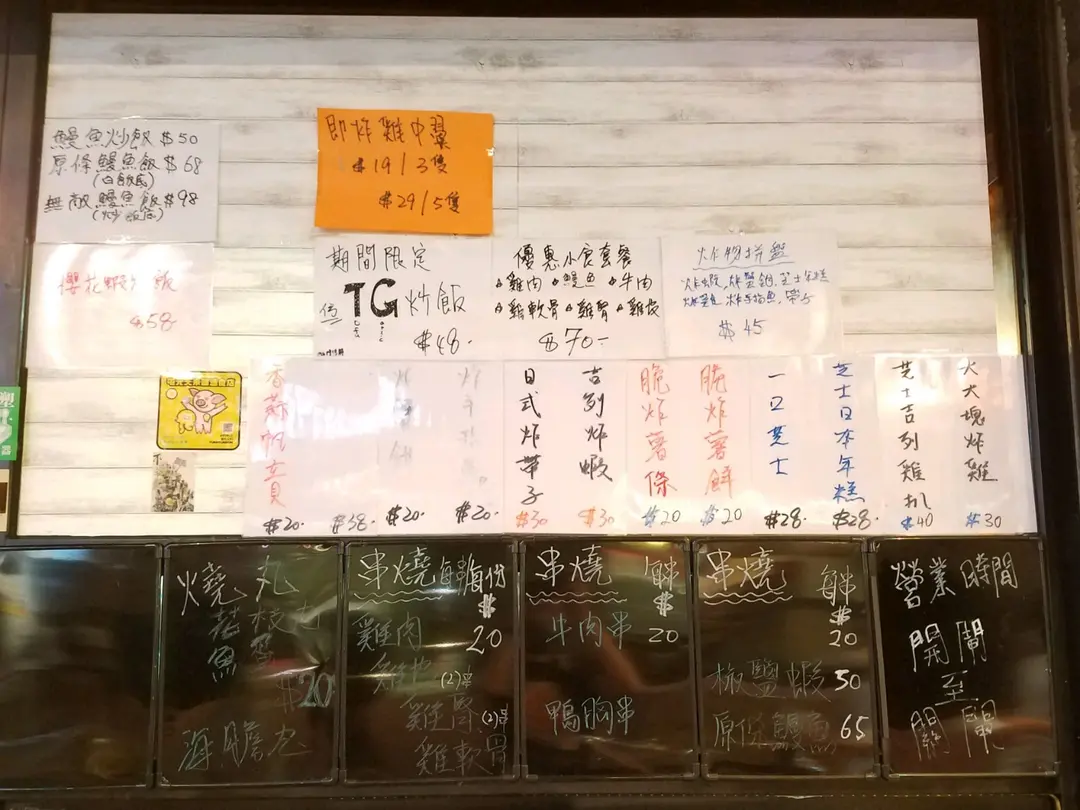 鰻魚炒飯 $50
原條鰻魚飯 $68
(白飯底)
無敵鰻魚飯 $98
(炒飯底)
即炸雞中翼
$19/3隻
$29/5隻
櫻花蝦炒飯
$58
期間限定
TG炒飯
$48-
優惠小食套餐
雞肉 鰻魚 牛肉
雞軟骨 雞腎 雞皮
$70-
炸物拼盤
$45
香蒜帆立貝
$20.
$38.
$20.
$20.
日式炸帶子
$30
吉列炸蝦
$30
脆炸薯條
$20
脆炸薯餅
$20
一口芝士
$28.
芝士日本年糕
$28.
芝士吉列雞扒
$40
大大塊炸雞
$30
燒丸
$20
海膽丸
串燒 每串/每份
$
雞肉 20
雞皮 (2)串
雞腎 (2)串
雞軟骨
串燒 每串
$
牛肉串 20
鴨胸串
串燒 每串
$
20
椒鹽蝦 30
原條鰻魚 65
營業時間
開閘
至
關閘